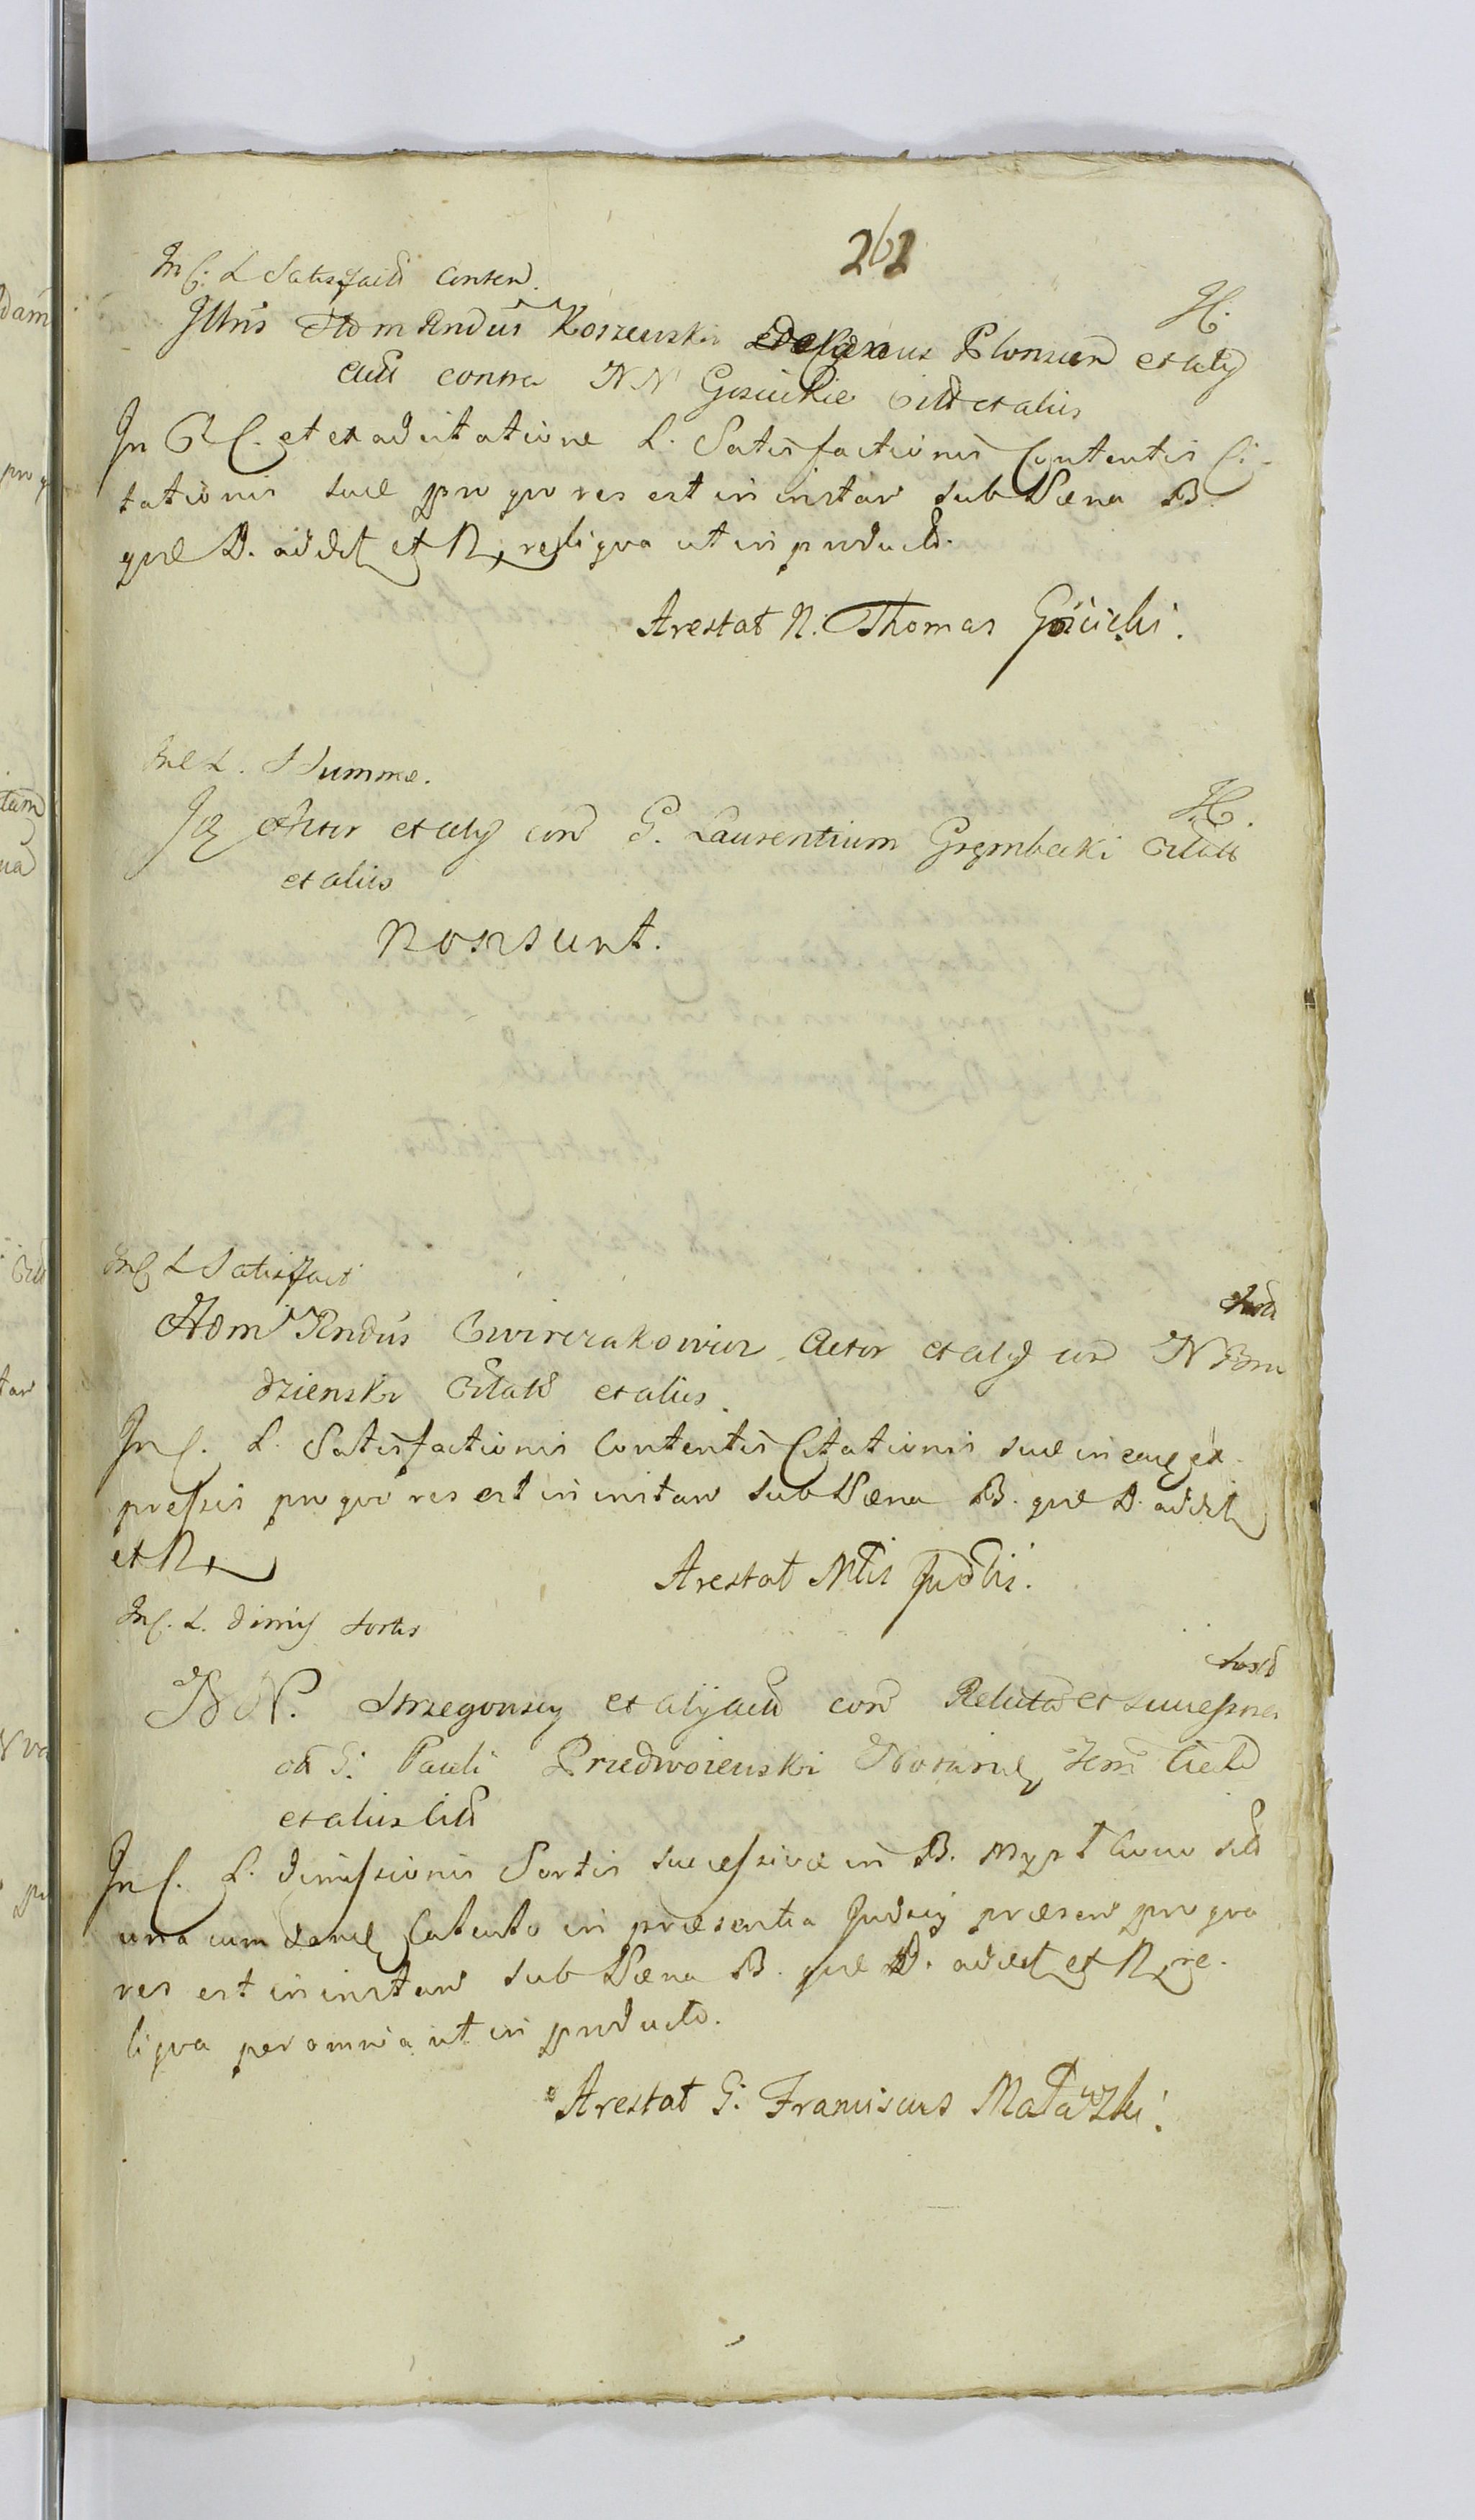 262
In C. L Satisfactis Conten.
H.
Illris Adm Rndus Koszewski Decanus Plonscen et alij
Actt contra NN Goscickie Citt et alios
In C. et ex adcitatione L. Satisfactionis Contentis Ci-
tationis suae pro quo res est in instan sub Paena B.
quae D. addet et R, reliqua ut in producto.
Arestat N. Thomas Goscicki.
L. Summae.
H.
Idem Actor et alij con G. Laurentium Grembecki Citat
et alios
non sunt.
In C L Satisfact
Adm Rndus Cwierczakowicz Actor et alij con N Bru
dzienski Citat et alios
In C. L. Satisfactionis Contentis Citationis suae in eaque ex-
pressis pro quo res est in instan sub Paena B. quae D. addet
et R
Arestat Mtis Judlis.
In C. L. dimis Sortis
NN. Strzegonscy et alij Act con et Successores
G. Pauli Przedwoiewski Notarii
et alios Citt
In C. L. dimissionis Sortis successivae in B.
una cum in praesentia Judicij praesen pro quo
res est in instan sub Paena B. quae D. addet et R, re-
liqua per omnia ut in producto.
Arestat G. Franciscus